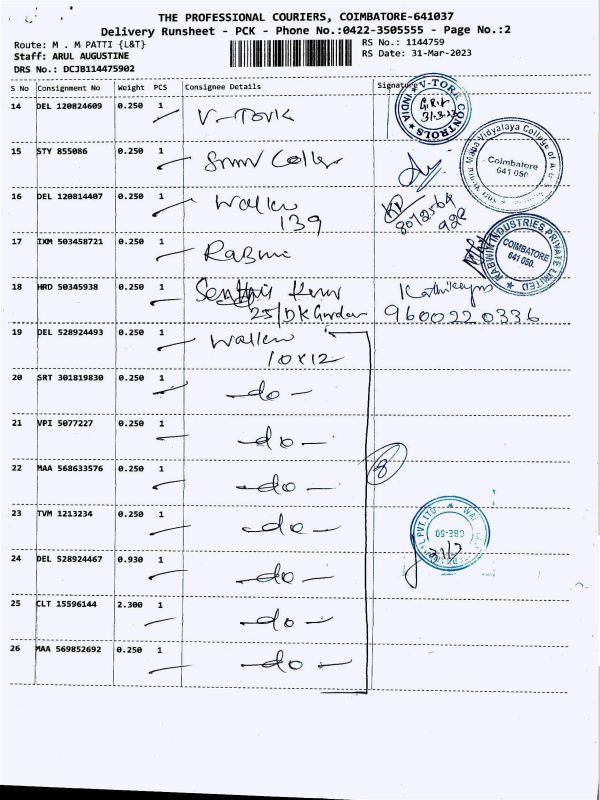 THE PROFESSIONAL COURIERS, COIMBATORE-641037
Delivery Runsheet - PCK - Phone No.:0422-3505555 - Page No.:2
Route: M . M PATTI {L&T}
RS No.: 1144759
Staff: ARUL AUGUSTINE
RS Date: 31-Mar-2023
DRS No.: DCJB114475902
S No Consignment No Weight PCS Consignee Details Signature
14 DEL 120824609 0.250 1 V-Tork
V-TORK CONTROLS INDIA
31.3.23
15 STY 855086 0.250 1
Maha Vidyalaya College of
Coimbatore
641 050
16 DEL 120814407 0.250 1
139
17 IXM 503458721 0.250 1
RABWIN INDUSTRIES PRIVATE LIMITED
COIMBATORE
641 050.
18 HRD 50345938 0.250 1
9600220336
19 DEL 528924493 0.250 1
10x12
20 SRT 301819830 0.250 1 -do-
21 VPI 5077227 0.250 1 -do-
22 MAA 568633576 0.250 1 -do-
8
23 TVM 1213234 0.250 1 -do-
PVT. LTD.
CBE-50
24 DEL 528924467 0.930 1 -do-
25 CLT 15596144 2.300 1 -do-
26 MAA 569852692 0.250 1 -do-